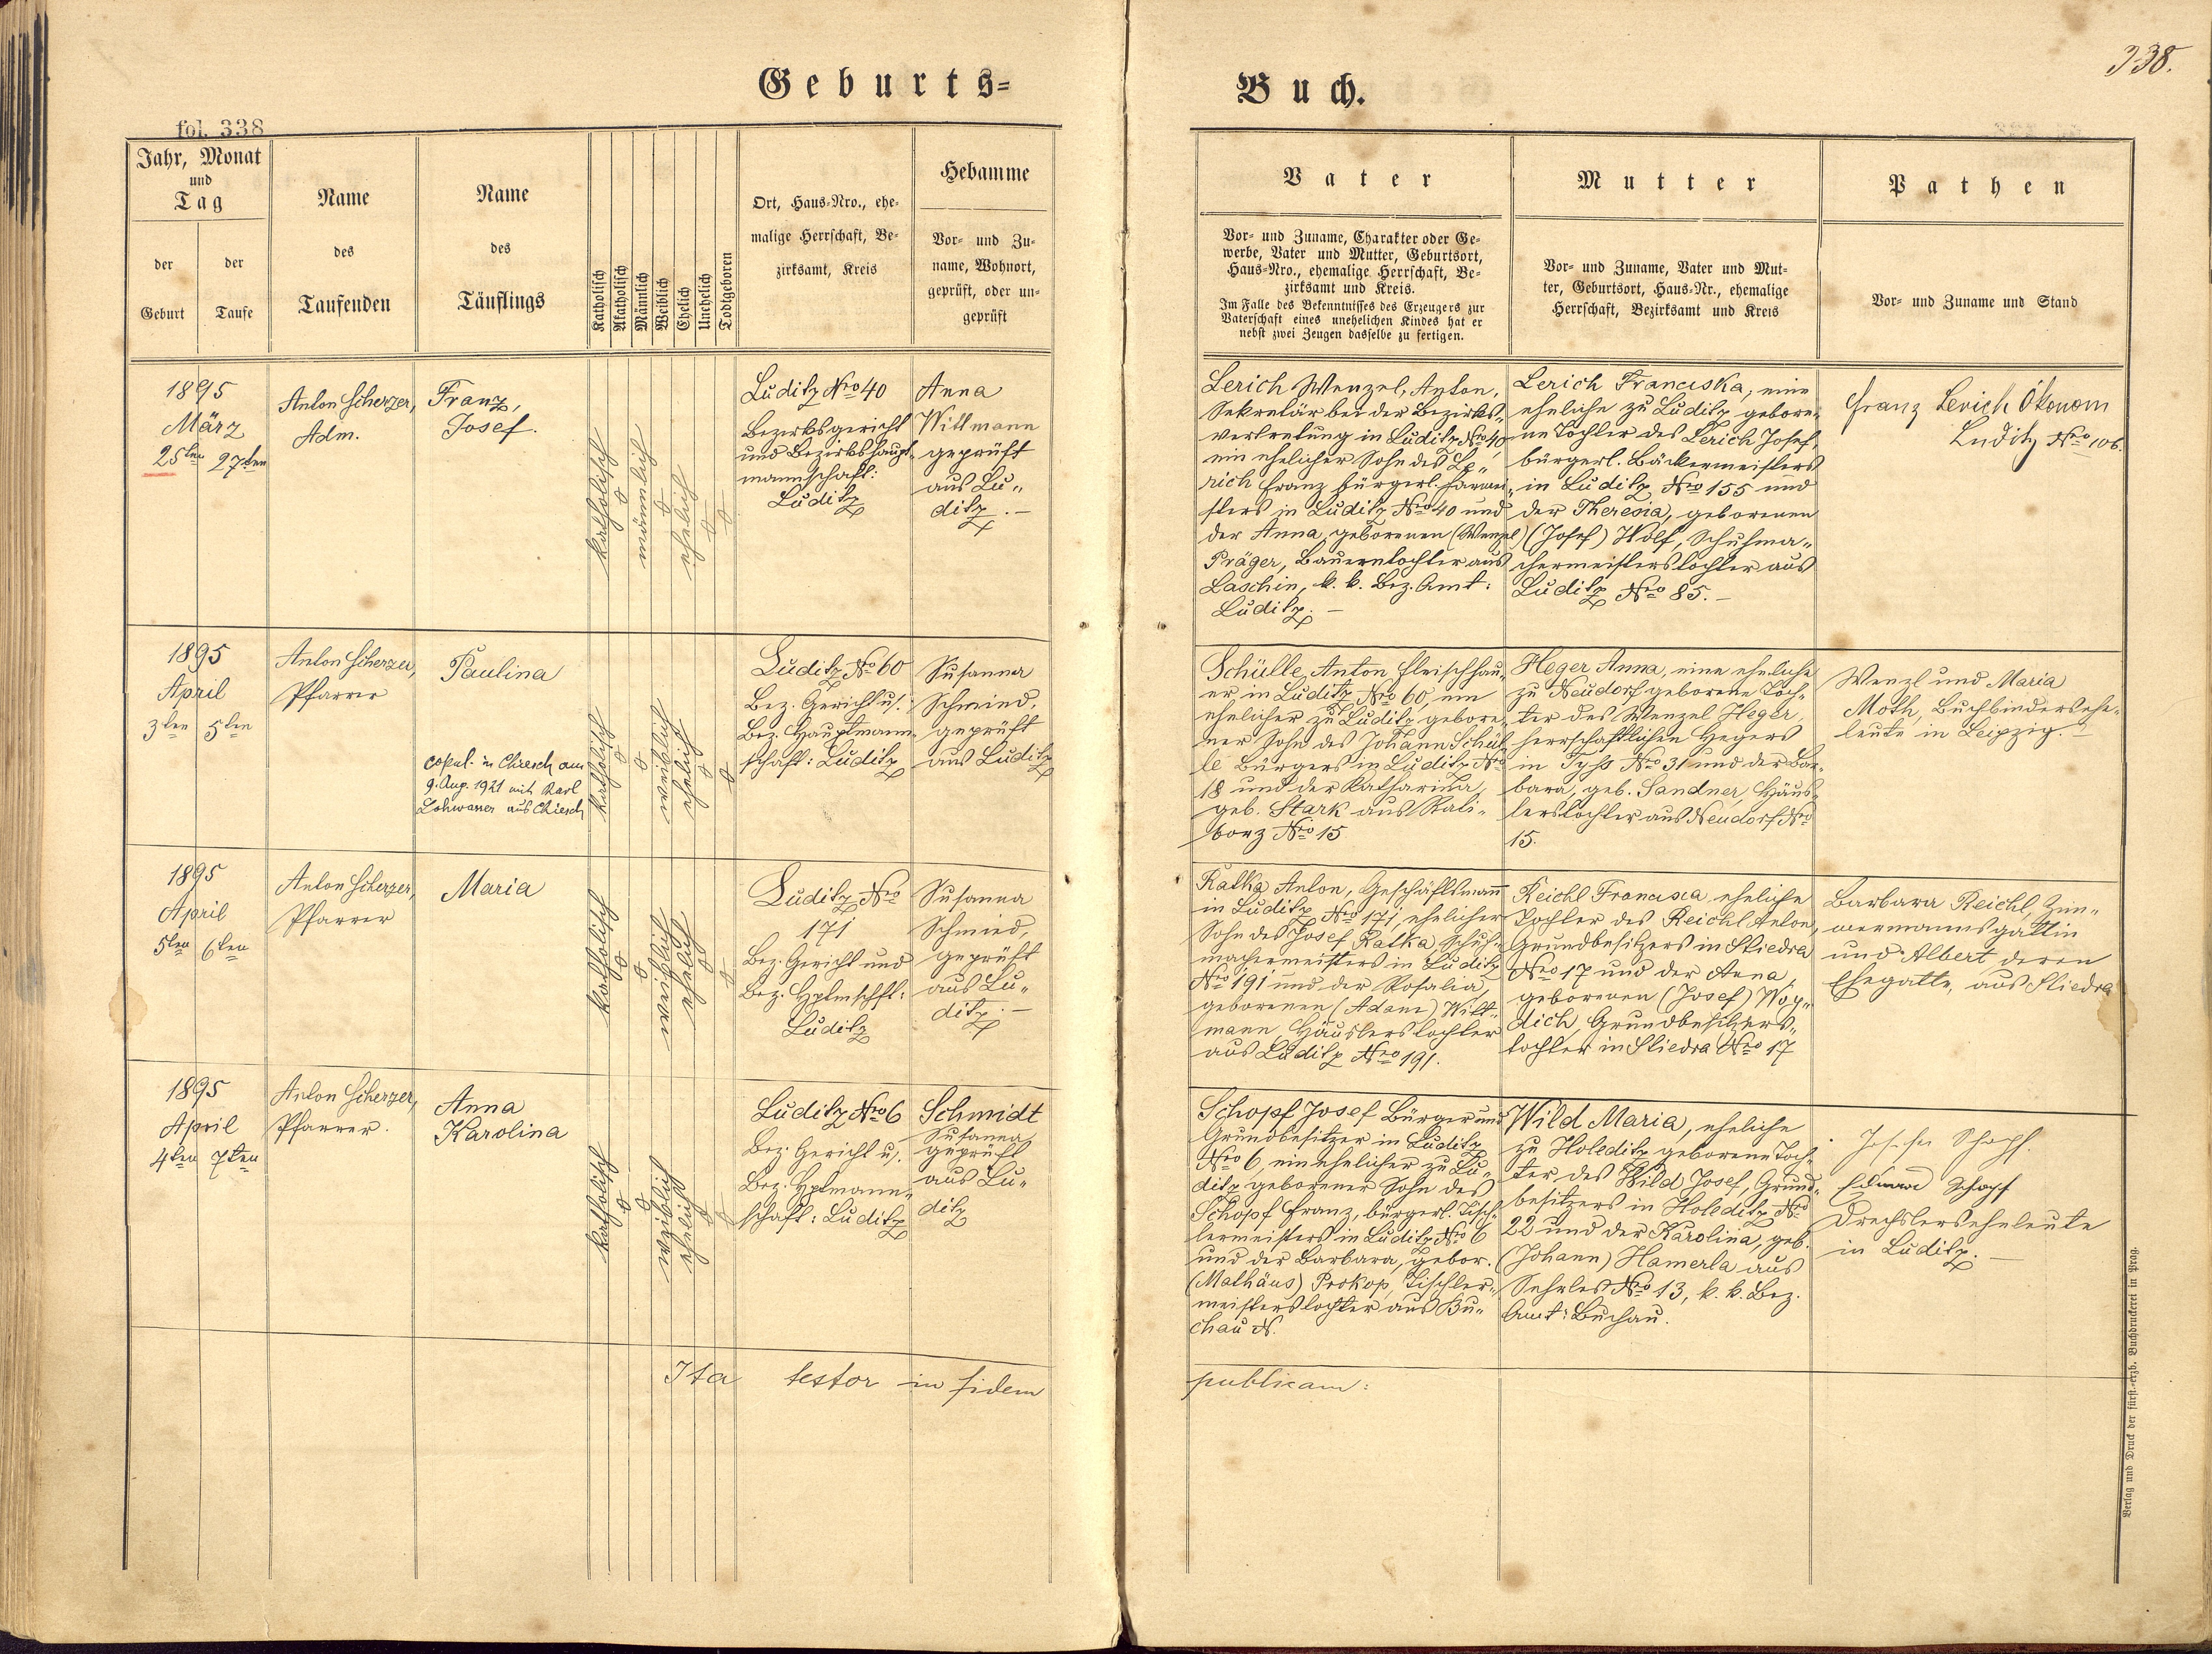 Geburts=
Buch.
338.
fol. 338
Jahr, Monat
und
Tag
der
Geburt
der
Taufe
Name
des
Taufenden
Name
des
Täuflings
Katholisch
Akatholisch
Männlich
Weiblich
Ehelich
Unehelich
Todtgeboren
Ort, Haus-Nro., ehe-
malige Herrschaft, Be-
zirksamt, Kreis
Hebamme
Vor- und Zu-
name, Wohnort,
geprüft, oder un-
geprüft
Vater
Vor- und Zuname, Charakter oder Ge-
werbe, Vater und Mutter, Geburtsort,
Haus-Nro., ehemalige Herrschaft, Be-
zirksamt und Kreis.
Im Falle des Bekenntnisses des Erzeugers zur
Vaterschaft eines unehelichen Kindes hat er
nebst zwei Zeugen dasselbe zu fertigen.
Mutter
Vor- und Zuname, Vater und Mut-
ter, Geburtsort, Haus-Nr., ehemalige
Herrschaft, Bezirksamt und Kreis
Pathen
Vor- und Zuname und Stand
1895
März
25ten 27ten
Anton Scherzer,
Adm.
Franz,
Josef.
katholisch
o
männlich
o
ehelich
o
o
Luditz Nro 40
Bezirksgericht
und Bezirkshaupt-
mannschaft:
Luditz
Anna
Wittmann
geprüft
aus Lu„
ditz.—
Lerich Wenzel, Anton,
Sekretär bei der Bezirks-
vertretung in Luditz Nro 40,
ein ehelicher Sohn des Le„
rich Franz bürgerl.
in Luditz Nro 40 und
der Anna, geborenen (Wenzel)
Präger, Bauerntochter aus
Laschin, k. k. Bez. Amt:
Luditz.—
Lerich Franciska, eine
eheliche zu Luditz gebore-
ne Tochter des Lerich Josef,
bürgerl. Bäckermeisters
in Luditz Nro 155 und
der Theresia, geborenen
(Josef) Wolf, Schuhma„
chermeisterstochter aus
Luditz Nro 85.—
Franz Lerich Ökonom
Luditz Nro 106.
1895
April
3ten 5ten
Anton Scherzer,
Pfarrer
Paulina
copul. in Chiesch am
9. Aug. 1921 mit Karl
Lohwasser aus Chiesch
katholisch
o
o
weiblich
ehelich
o
o
Luditz No 60
Bez. Gericht u.
Bez. Hauptmann-
schaft: Luditz
Susanna
Schmied,
geprüft
aus Luditz
Schülle, Anton Fleischhau-
er in Luditz Nro 60, ein
ehelicher zu Luditz gebore-
ner Sohn des Johann Schül-
le Bürgers in Luditz Nro
18 und der Katharina,
geb. Stark aus Rati-
borz Nro 15
Heger Anna, eine eheliche
zu Neudorf geborene Toch-
ter des Wenzel Heger,
herrschaftlichen Hegers
in Tyss Nro 31 und der Bar-
bara, geb. Sandner, Häus-
lerstochter aus Neudorf Nro
15.
Wenzl und Maria
Moth, Buchbindersehe-
leute in Leipzig.—
1895
April
5ten 6ten
Anton Scherzer,
Pfarrer
Maria
katholisch
o
o
weiblich
ehelich
o
o
Luditz Nro
171
Bez. Gericht und
Bez. Hptmschft:
Luditz
Susanna
Schmied,
geprüft
aus Lu„
ditz.—
Ratka Anton, Geschäftsmann
in Luditz Nro 171, ehelicher
Sohn des Josef Ratka Schuh-
machermeisters in Luditz
Nro 191 und der Rosalia,
geborenen (Adam) Witt-
mann Häuslerstochter
aus Luditz Nro 191.
Reichl Francisca eheliche
Tochter des Reichl Anton,
Grundbesitzers in Stiedra
Nro 17 und der Anna,
geborenen (Josef) Woy„
dich, Grundbesitzers„
tochter in Stiedra Nro 17
Barbara Reichl, Zim„
mermannsgattin
und Albert deren
Ehegatte, aus Stiedra
1895
April
4ten 7ten
Anton Scherzer,
Pfarrer.
Anna
Karolina
katholisch
o
o
weiblich
ehelich
o
o
Luditz Nro 6
Bez. Gericht u.
Bez. Hptmann-
schaft: Luditz
Schmidt
Susanna,
geprüft
aus Lu„
ditz
Schopf Josef Bürger und
Grundbesitzer in Luditz
Nro 6, ein ehelicher zu Lu-
ditz geborener Sohn des
Schopf Franz, bürgerl. Tisch-
lermeisters in Luditz Nro 6
und der Barbara, gebor.
(Mathäus) Prokop, Tischler-
meisterstochter aus Bu„
chau N.
Wild Maria, eheliche
zu Holeditz geborene Toch-
ter des Wild Josef, Grund-
besitzers in Holeditz Nro
22 und der Karolina, geb.
(Johann) Hamerla aus
Sehrles Nro 13, k. k. Bez.
Amt: Buchau.
Schopf.
Eduard Schopf
Drechslerseheleute
in Luditz.—
Ita testor in fidem
publicam:
Verlag und Druck der fürst.-erzb. Buchdruckerei in Prag.